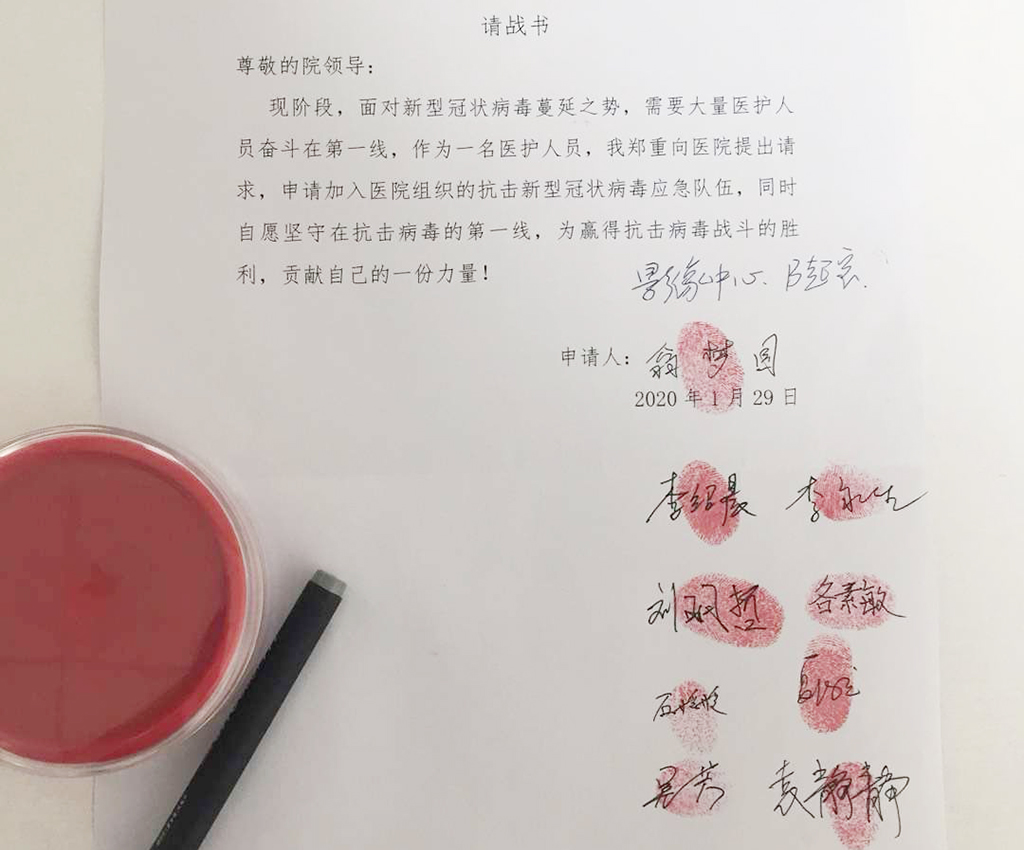 请战书
尊敬的院领导：
现阶段，面对新型冠状病毒蔓延之势，需要大量医护人
员奋斗在第一线，作为一名医护人员，我郑重向医院提出请
求，申请加入医院组织的抗击新型冠状病毒应急队伍，同时
自愿坚守在抗击病毒的第一线，为赢得抗击病毒战斗的胜
利，贡献自己的一份力量！
影像中心
申请人：翁梦圆
2020年1月29日
李绍晨
刘 哲 素敏
吴芳 袁静静